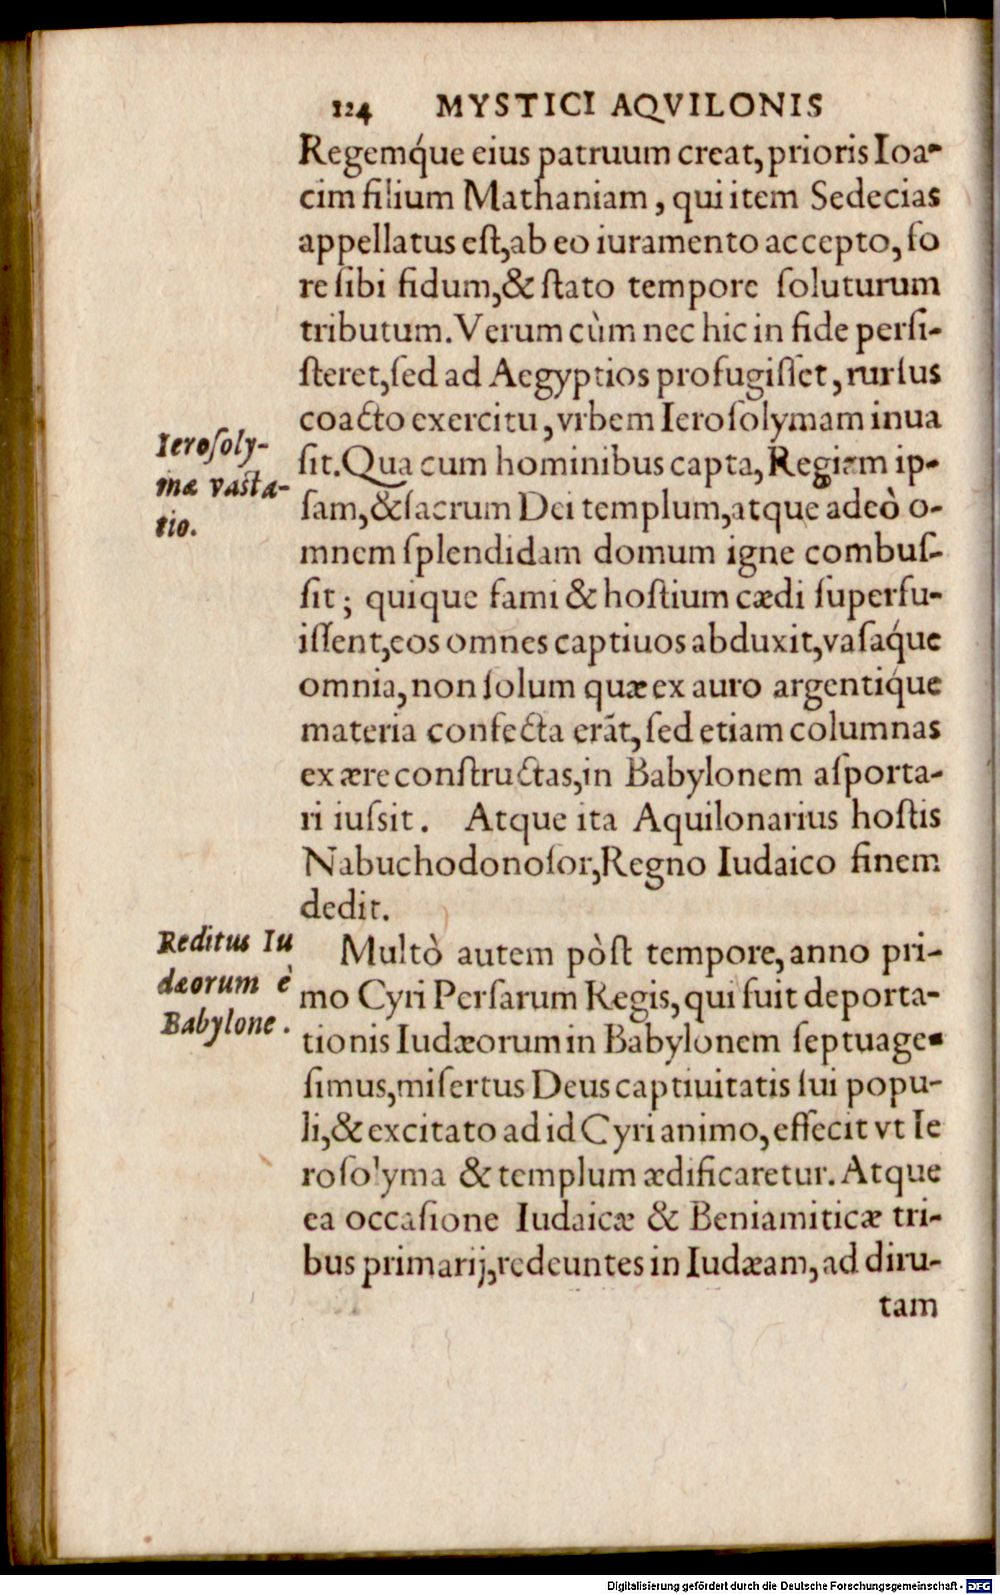 124 MYSTICI AQVILONIS
Regemq́ue eius patruum creat, prioris Ioa-
cim filium Mathaniam, qui item Sedecias
appellatus eſt, ab eo iuramento accepto, fo
re ſibi fidum, & ſtato tempore ſoluturum
tributum. Verum cùm nec hic in fide perſi-
ſteret, ſed ad Aegyptios profugiſſet, rurſus
coacto exercitu, vrbem Ieroſolymam inua
ſit. Qua cum hominibus capta, Regiam ip-
ſam, & ſacrum Dei templum, atque adeò o-
mnem ſplendidam domum igne combuſ-
ſit; quique fami & hoſtium cædi ſuperfu-
iſſent, eos omnes captiuos abduxit, vaſaq́ue
omnia, non ſolum quæ ex auro argentiq́ue
materia confecta erãt, ſed etiam columnas
ex ære conſtructas, in Babylonem aſporta-
ri iuſsit. Atque ita Aquilonarius hoſtis
Nabuchodonoſor, Regno Iudaico finem
dedit.
Ieroſoly-
mæ vaſta-
tio.
Multò autem pòſt tempore, anno pri-
mo Cyri Perſarum Regis, qui fuit deporta-
tionis Iudæorum in Babylonem ſeptuage-
ſimus, miſertus Deus captiuitatis ſui popu-
li, & excitato ad id Cyri animo, effecit vt Ie
roſolyma & templum ædificaretur. Atque
ea occaſione Iudaicæ & Beniamiticæ tri-
bus primarij, redeuntes in Iudæam, ad diru-
tam
Reditus Iu
dæorum è
Babylone.
Digitalisierung gefördert durch die Deutsche Forschungsgemeinschaft - DFG